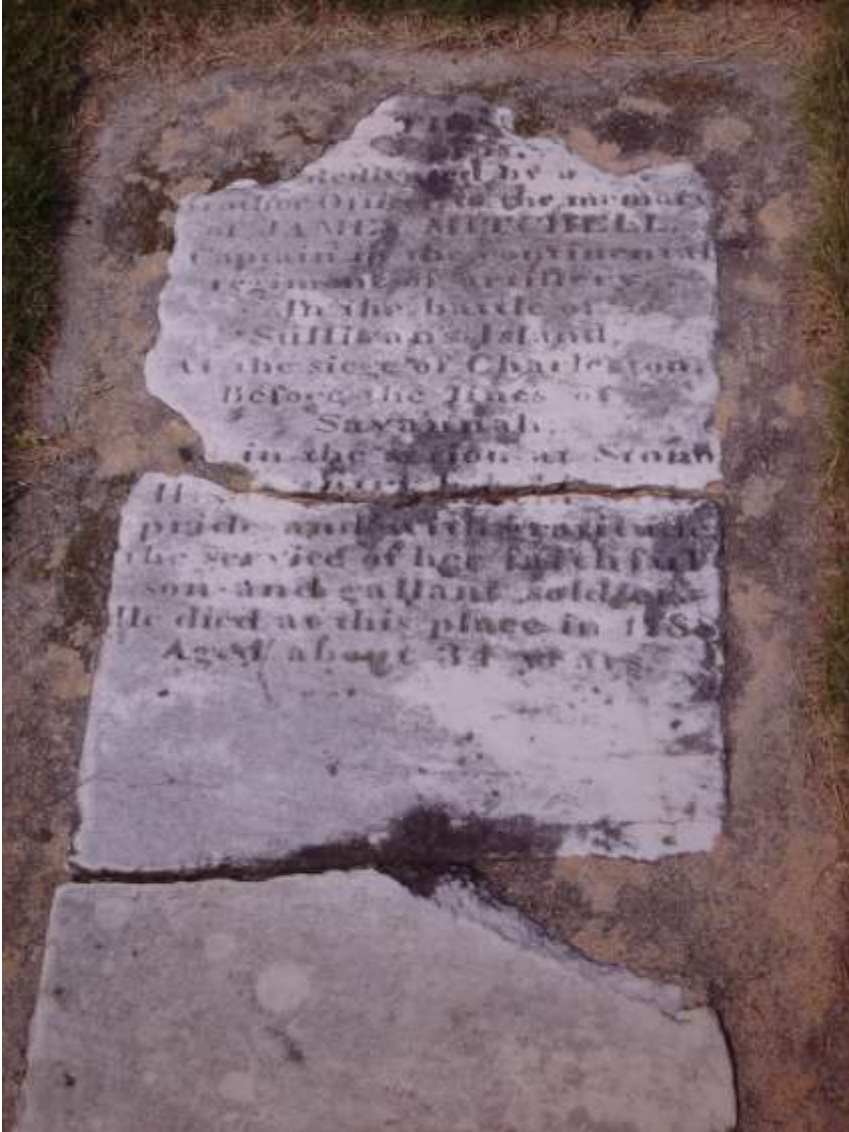 THIS
dedicated by a
brother Officer to the memory
of JAMES MITCHELL,
Captain in the continental
regiment of artillery.
In the battle of
Sullivans Island,
At the siege of Charleston,
Before the lines of
Savannah,
in the action at Stono
pride and with gratitude
the service of her faithful
son and gallant soldier
He died at this place in
Aged about 34 years